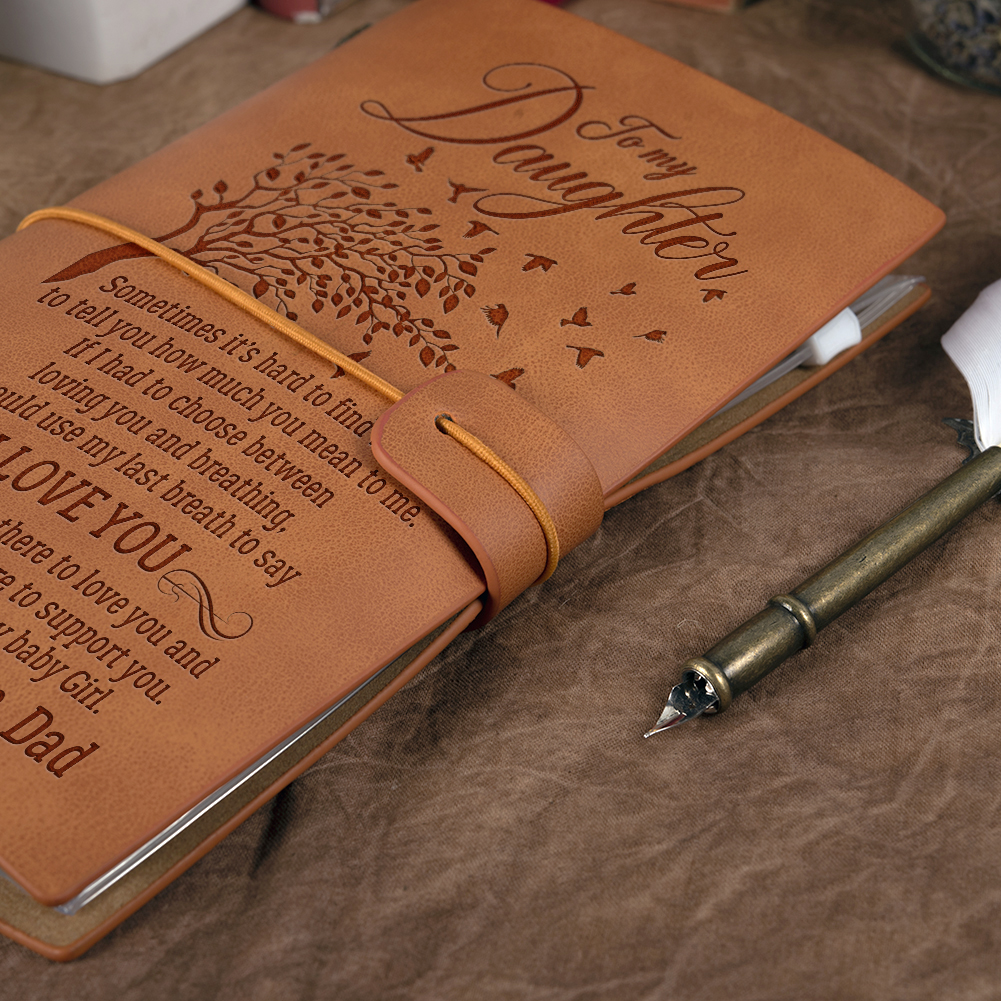 To my
Daughter
Sometimes it's hard to find
to tell you how much you mean to me.
If I had to choose between
loving you and breathing
use my last breath to say
LOVE YOU
there to love you and
to support you.
baby Girl.
Dad